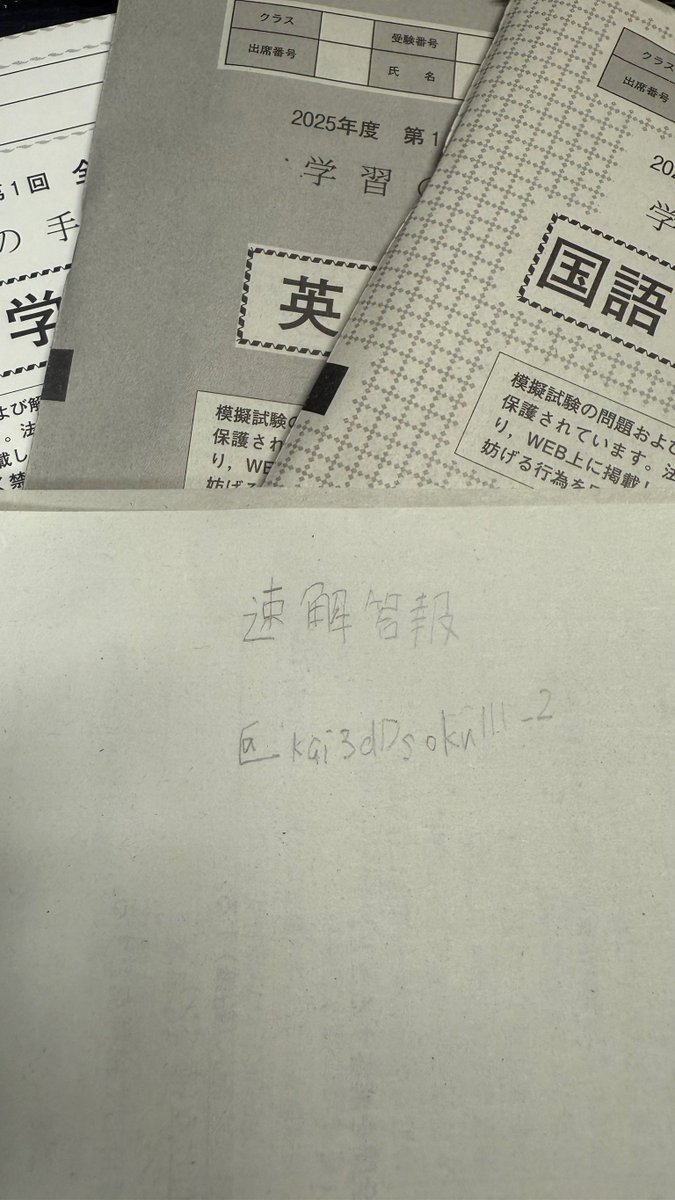 第1回 全
の 手
学
および解
。法
載し
く禁
クラス
出席番号
受験番号
氏 名
2025年度 第1
学 習 の
英
模擬試験の
保護され
り,WE
妨げる
クラス
出席番号
202
学
国語
模擬試験の問題および
保護されています。法
り,WEB上に掲載し
妨げる行為を
速解答報